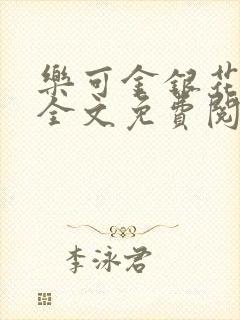 樂可金銀花
全文免費閱
李泳君